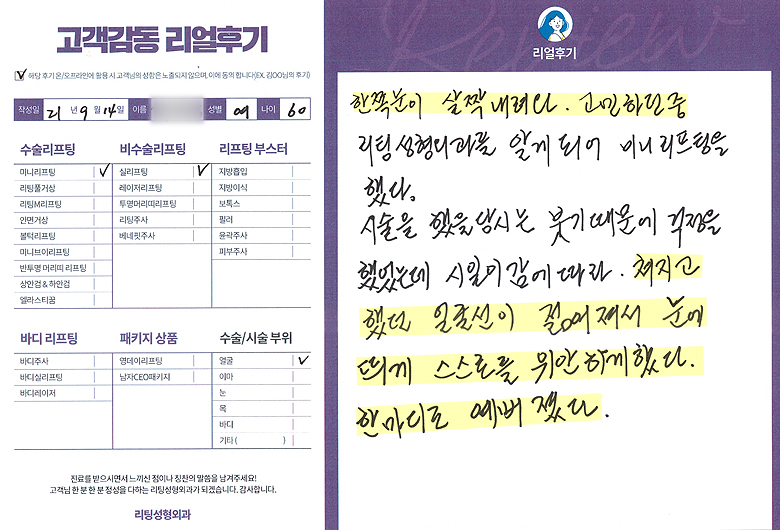 고객감동 리얼후기
해당 후기 온/오프라인에 활용 시 고객님의 성함은 노출되지 않으며, 이에 동의 합니다(EX. 김OO님의 후기)
작성일 21 년 9 월 14일 이름 성별 여 나이 60
수술리프팅
미니리프팅
리팅풀거상
리팅M리프팅
안면거상
볼턱리프팅
미니브이리프팅
반투명 머리띠 리프팅
상안검 & 하안검
엘라스티꿈
비수술리프팅
실리프팅
레이저리프팅
투명머리띠리프팅
리팅주사
베네핏주사
리프팅 부스터
지방흡입
지방이식
보톡스
필러
윤곽주사
피부주사
바디 리프팅
바디주사
바디실리프팅
바디레이저
패키지 상품
영데이리프팅
남자CEO패키지
수술/시술 부위
얼굴
이마
눈
목
바디
기타 ( )
진료를 받으시면서 느끼신 점이나 칭찬의 말씀을 남겨주세요!
고객님 한 분 한 분 정성을 다하는 리팅성형외과가 되겠습니다. 감사합니다.
리팅성형외과
Review
리얼후기
한쪽눈이 살짝 내려다. 고민하던중
리팅성형외과를 알게 되어 미니리프팅을
했다.
시술을 했을 당시는 붓기때문에 걱정을
했었는데 시일이감에 따라. 쳐지고
했던 얼굴선이 젊어져서 눈에
띄게 스스로를 위안 하게했다.
한마디로 예뻐 졌다.